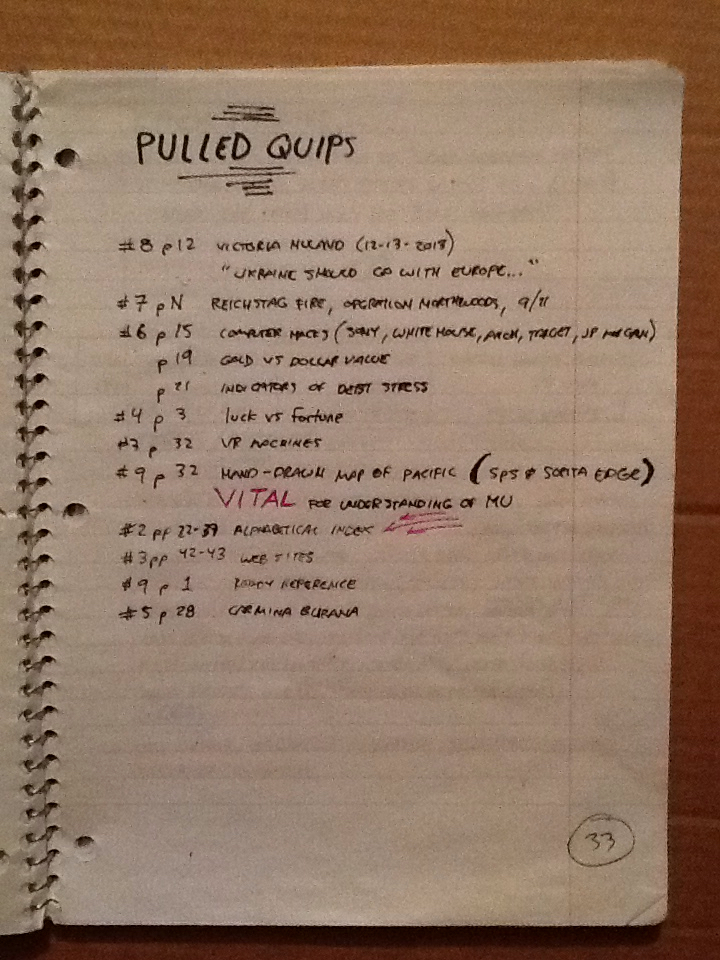 PULLED QUIPS
#8 p12 VICTORIA NULAND (12-13-2013)
"UKRAINE SHOULD GO WITH EUROPE..."
#7 p N REICHSTAG FIRE, OPERATION NORTHWOODS, 9/11
#6 p 15 COMPUTER HACKS (SONY, WHITE HOUSE, TARGET, JP MORGAN)
p 19 GOLD VS DOLLAR VALUE
p 21 INDICATORS OF DEBT STRESS
#4 p 3 luck vs fortune
p 32 VR MACHINES
#9 p 32 HAND-DRAWN MAP OF PACIFIC (SPS & EDGE)
VITAL FOR UNDERSTANDING OF MU
#2 pp 22-39 ALPHABETICAL INDEX
#3 pp 42-43 WEB SITES
#9 p 1 READY REFERENCE
#5 p 28 CARMINA BURANA
33